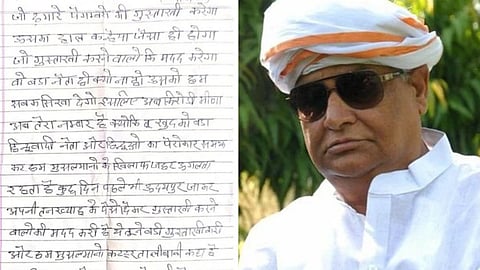 जो हमारे पैगम्बर की गुस्ताखी करेगा
उसका हाल कन्हैया जैसा ही होगा
जो गुस्ताखी करने वाले कि मदद करेगा
वो बडा नेता ही क्यो ना हो उसको हम
सबक सिखा देगे इसलिए अब किरोडी मीणा
अब तेरा नम्बर है क्योकि तू खुद को बडा
हिन्दूवादी नेता और हिन्दुओ का पेरोकार समझ
कर हम मुसलमानो के खिलाफ जहर उगलता
रहता है कुछ दिन पहले भी उदयपुर जाकर
अपनी तनख्वाह के पैसे देकर गुस्ताखी करने
वालो की मदद करी है ये तूने बडी गुस्ताखी करी
और हम मुसलमानो का